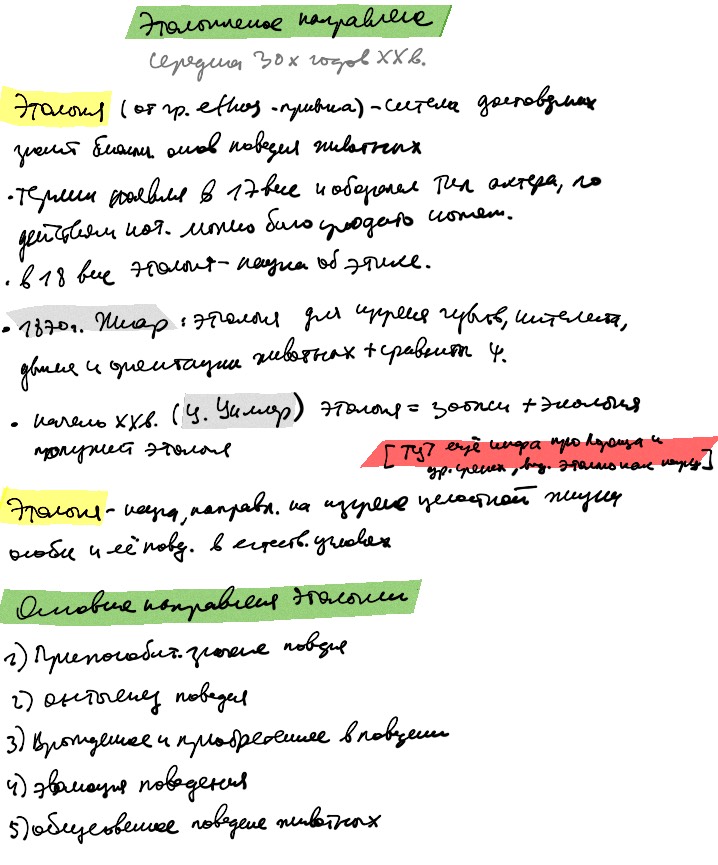 Этологическое направление
середина 30х годов XXв.
Этология (от гр. ethos - привычка) - система достоверных
знаний биологич. основ поведения животных
• термин появился в 17 веке и обозначал тип актера, по
действиям кот. можно было угадать
• в 18 веке этология - наука об этике.
• 1870г. Жиар : этология для изучения чувств, интеллекта,
движения и ориентации животных + сравнить ч.
• начало XXв. (У. Уиллер) этология = зоопси + экология
этология
[ Тут ещё инфа про Лоренца и
др. , этолог как наука ]
Этология - наука, направл. на изучение целостной жизни
особи и её повед. в естеств. условиях
Основные направления Этологии
1) Приспособит. значение поведения
2) онтогенез поведения
3) Врожденное и приобретенное в поведении
4) эволюция поведения
5) общественное поведение животных